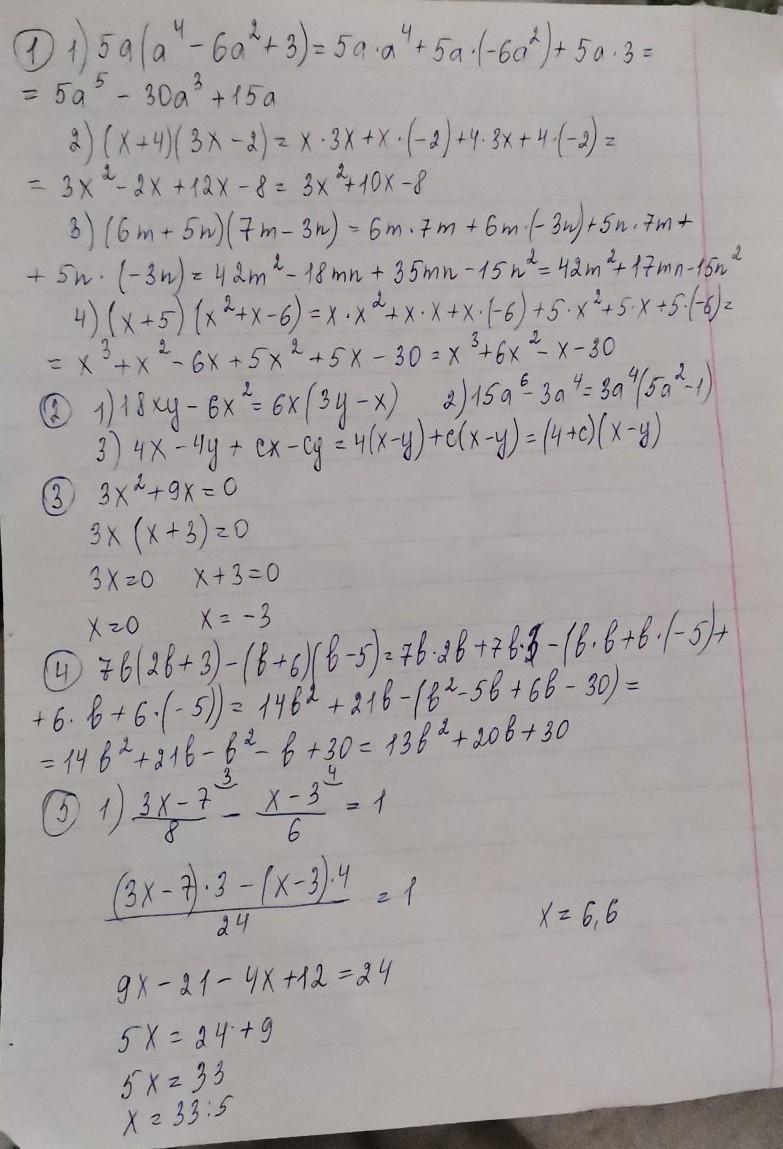 ① 1) 5a(a⁴ - 6a² + 3) = 5a·a⁴ + 5a·(-6a²) + 5a·3 =
= 5a⁵ - 30a³ + 15a
2) (x+4)(3x-2) = x·3x + x·(-2) + 4·3x + 4·(-2) =
= 3x² - 2x + 12x - 8 = 3x² + 10x - 8
3) (6m + 5n)(7m - 3n) = 6m·7m + 6m·(-3n) + 5n·7m +
+ 5n·(-3n) = 42m² - 18mn + 35mn - 15n² = 42m² + 17mn - 15n²
4) (x+5)(x²+x-6) = x·x² + x·x + x·(-6) + 5·x² + 5·x + 5·(-6) =
= x³ + x² - 6x + 5x² + 5x - 30 = x³ + 6x² - x - 30
② 1) 18xy - 6x² = 6x(3y - x) 2) 15a⁶ - 3a⁴ = 3a⁴(5a² - 1)
3) 4x - 4y + cx - cy = 4(x-y) + c(x-y) = (4+c)(x-y)
③ 3x² + 9x = 0
3x(x+3) = 0
3x = 0 x+3 = 0
x = 0 x = -3
④ 7b(2b+3) - (b+6)(b-5) = 7b·2b + 7b·3 - (b·b + b·(-5) +
+ 6·b + 6·(-5)) = 14b² + 21b - (b² - 5b + 6b - 30) =
= 14b² + 21b - b² - b + 30 = 13b² + 20b + 30
⑤ 1) (3x-7)/8 ³ - (x-3)/6 ⁴ = 1
((3x-7)·3 - (x-3)·4)/24 = 1
x = 6,6
9x - 21 - 4x + 12 = 24
5x = 24 + 9
5x = 33
x = 33:5